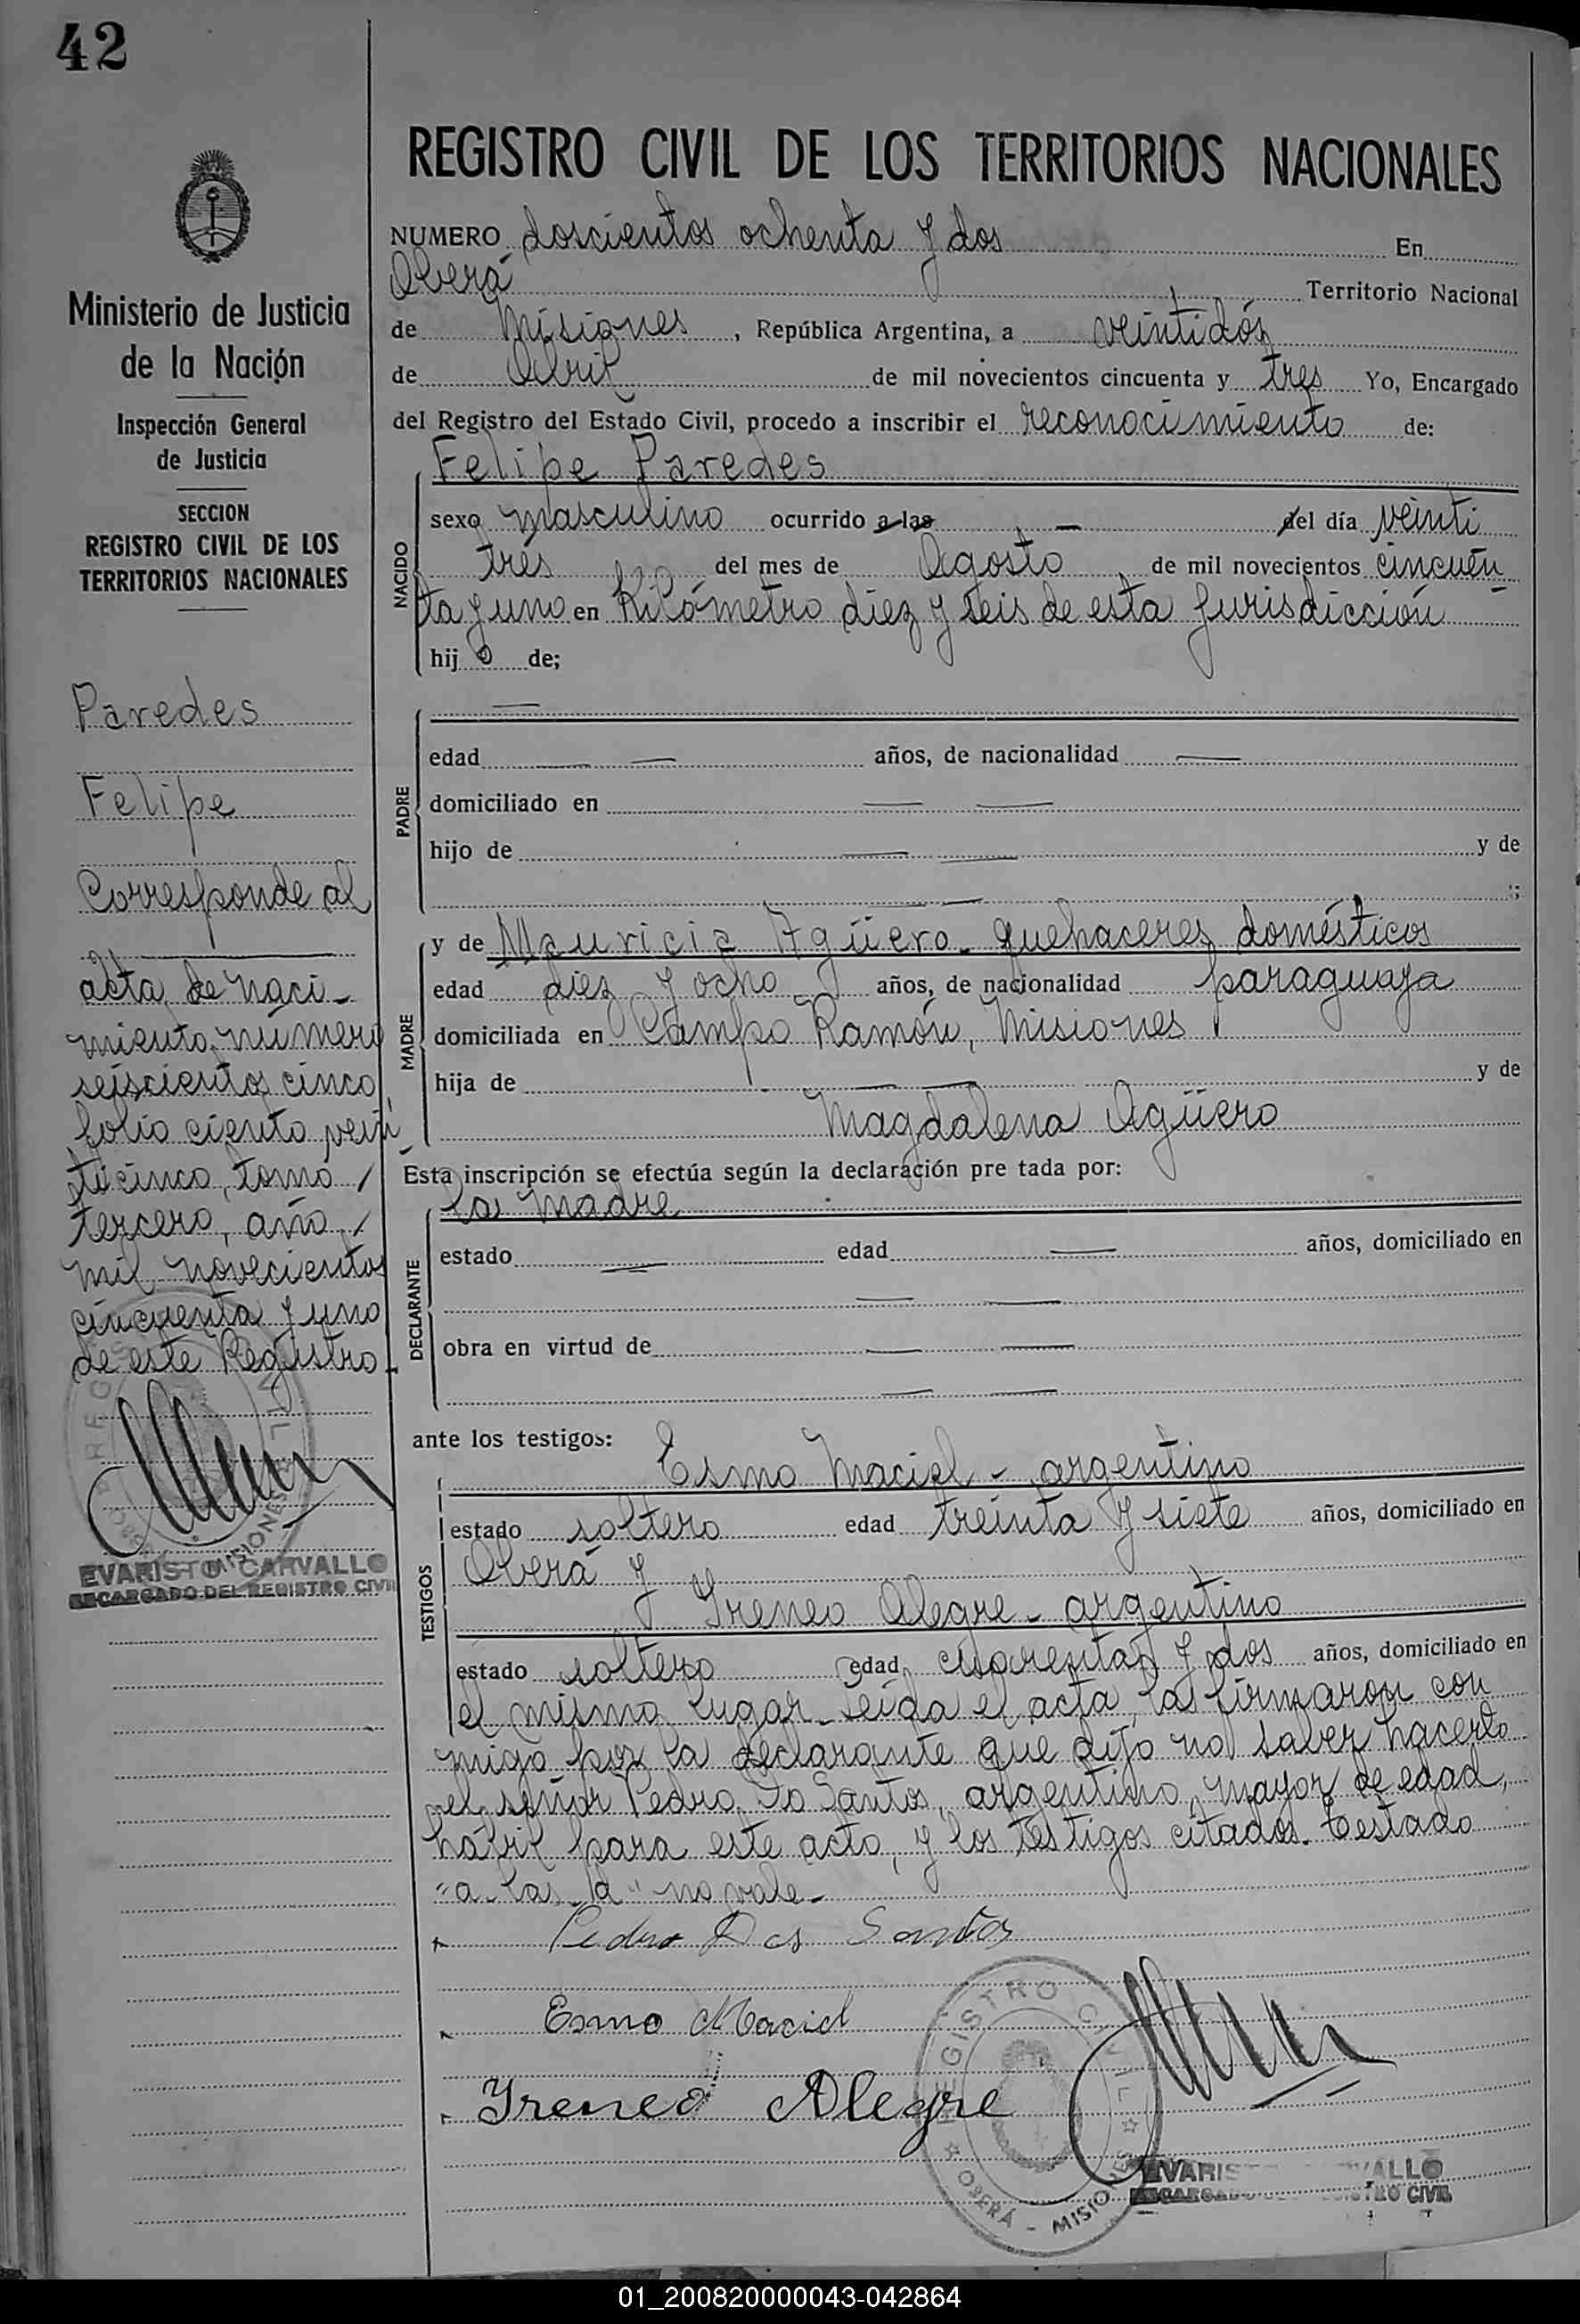 42
REGISTRO CIVIL DE LOS TERRITORIOS NACIONALES
Ministerio de Justicia
de la Nación
Inspección General
de Justicia
SECCION
REGISTRO CIVIL DE LOS
TERRITORIOS NACIONALES
Paredes
Felipe
Corresponde al
acta de naci-
miento número
seiscientos cinco,
folio ciento vein-
ticinco, tomo /
tercero, año /
mil novecientos
cincuenta y uno
de este Registro.-
EVARISTO CARVALLO
ENCARGADO DEL REGISTRO CIVIL
NUMERO doscientos ochenta y dos En
Oberá Territorio Nacional
de Misiones, República Argentina, a veintidós
de Abril de mil novecientos cincuenta y tres Yo, Encargado
del Registro del Estado Civil, procedo a inscribir el reconocimiento de:
Felipe Paredes
NACIDO
sexo masculino ocurrido a las — del día veinti
trés del mes de Agosto de mil novecientos cincuen
ta y uno en Kilómetro diez y seis de esta jurisdicción
hij o de;
—
PADRE
edad — — años, de nacionalidad —
domiciliado en — —
hijo de — — y de
— ;
MADRE
y de Mauricia Agüero - quehaceres domésticos
edad diez y ocho años, de nacionalidad paraguaya
domiciliada en Campo Ramón, Misiones
hija de — — y de
Magdalena Agüero
Esta inscripción se efectúa según la declaración pre tada por:
la madre
DECLARANTE
estado — edad — años, domiciliado en
— —
obra en virtud de — —
— —
ante los testigos:
TESTIGOS
Esmo Maciel - argentino
estado soltero edad treinta y siete años, domiciliado en
Oberá y
Ireneo Alegre - argentino
estado soltero edad cuarenta y dos años, domiciliado en
el mismo lugar. Leída el acta, la firmaron con
migo por la declarante que dijo no saber hacerlo
el señor Pedro Do Santos, argentino, mayor de edad,
hábil para este acto, y los testigos citados. Testado
"a las d" no vale-
Pedro Dos Santos
Esmo Maciel
Ireneo Alegre
REGISTRO CIVIL
OBERÁ - MISIONES
01_200820000043-042864